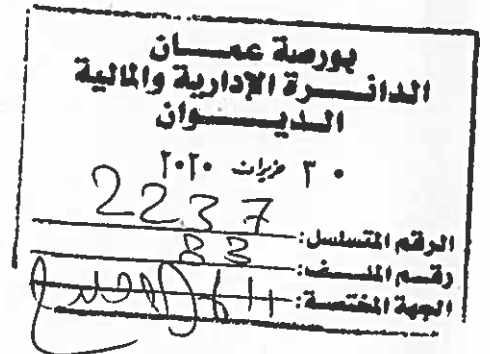 بورصة عمـــان
الدائـــــرة الإدارية والمالية
الـديـــــــوان
٣٠ حزيران ٢٠٢٠
الرقم المتسلسل:- 2237
رقـم الملـــف:- 83
الجهة المختصة:-